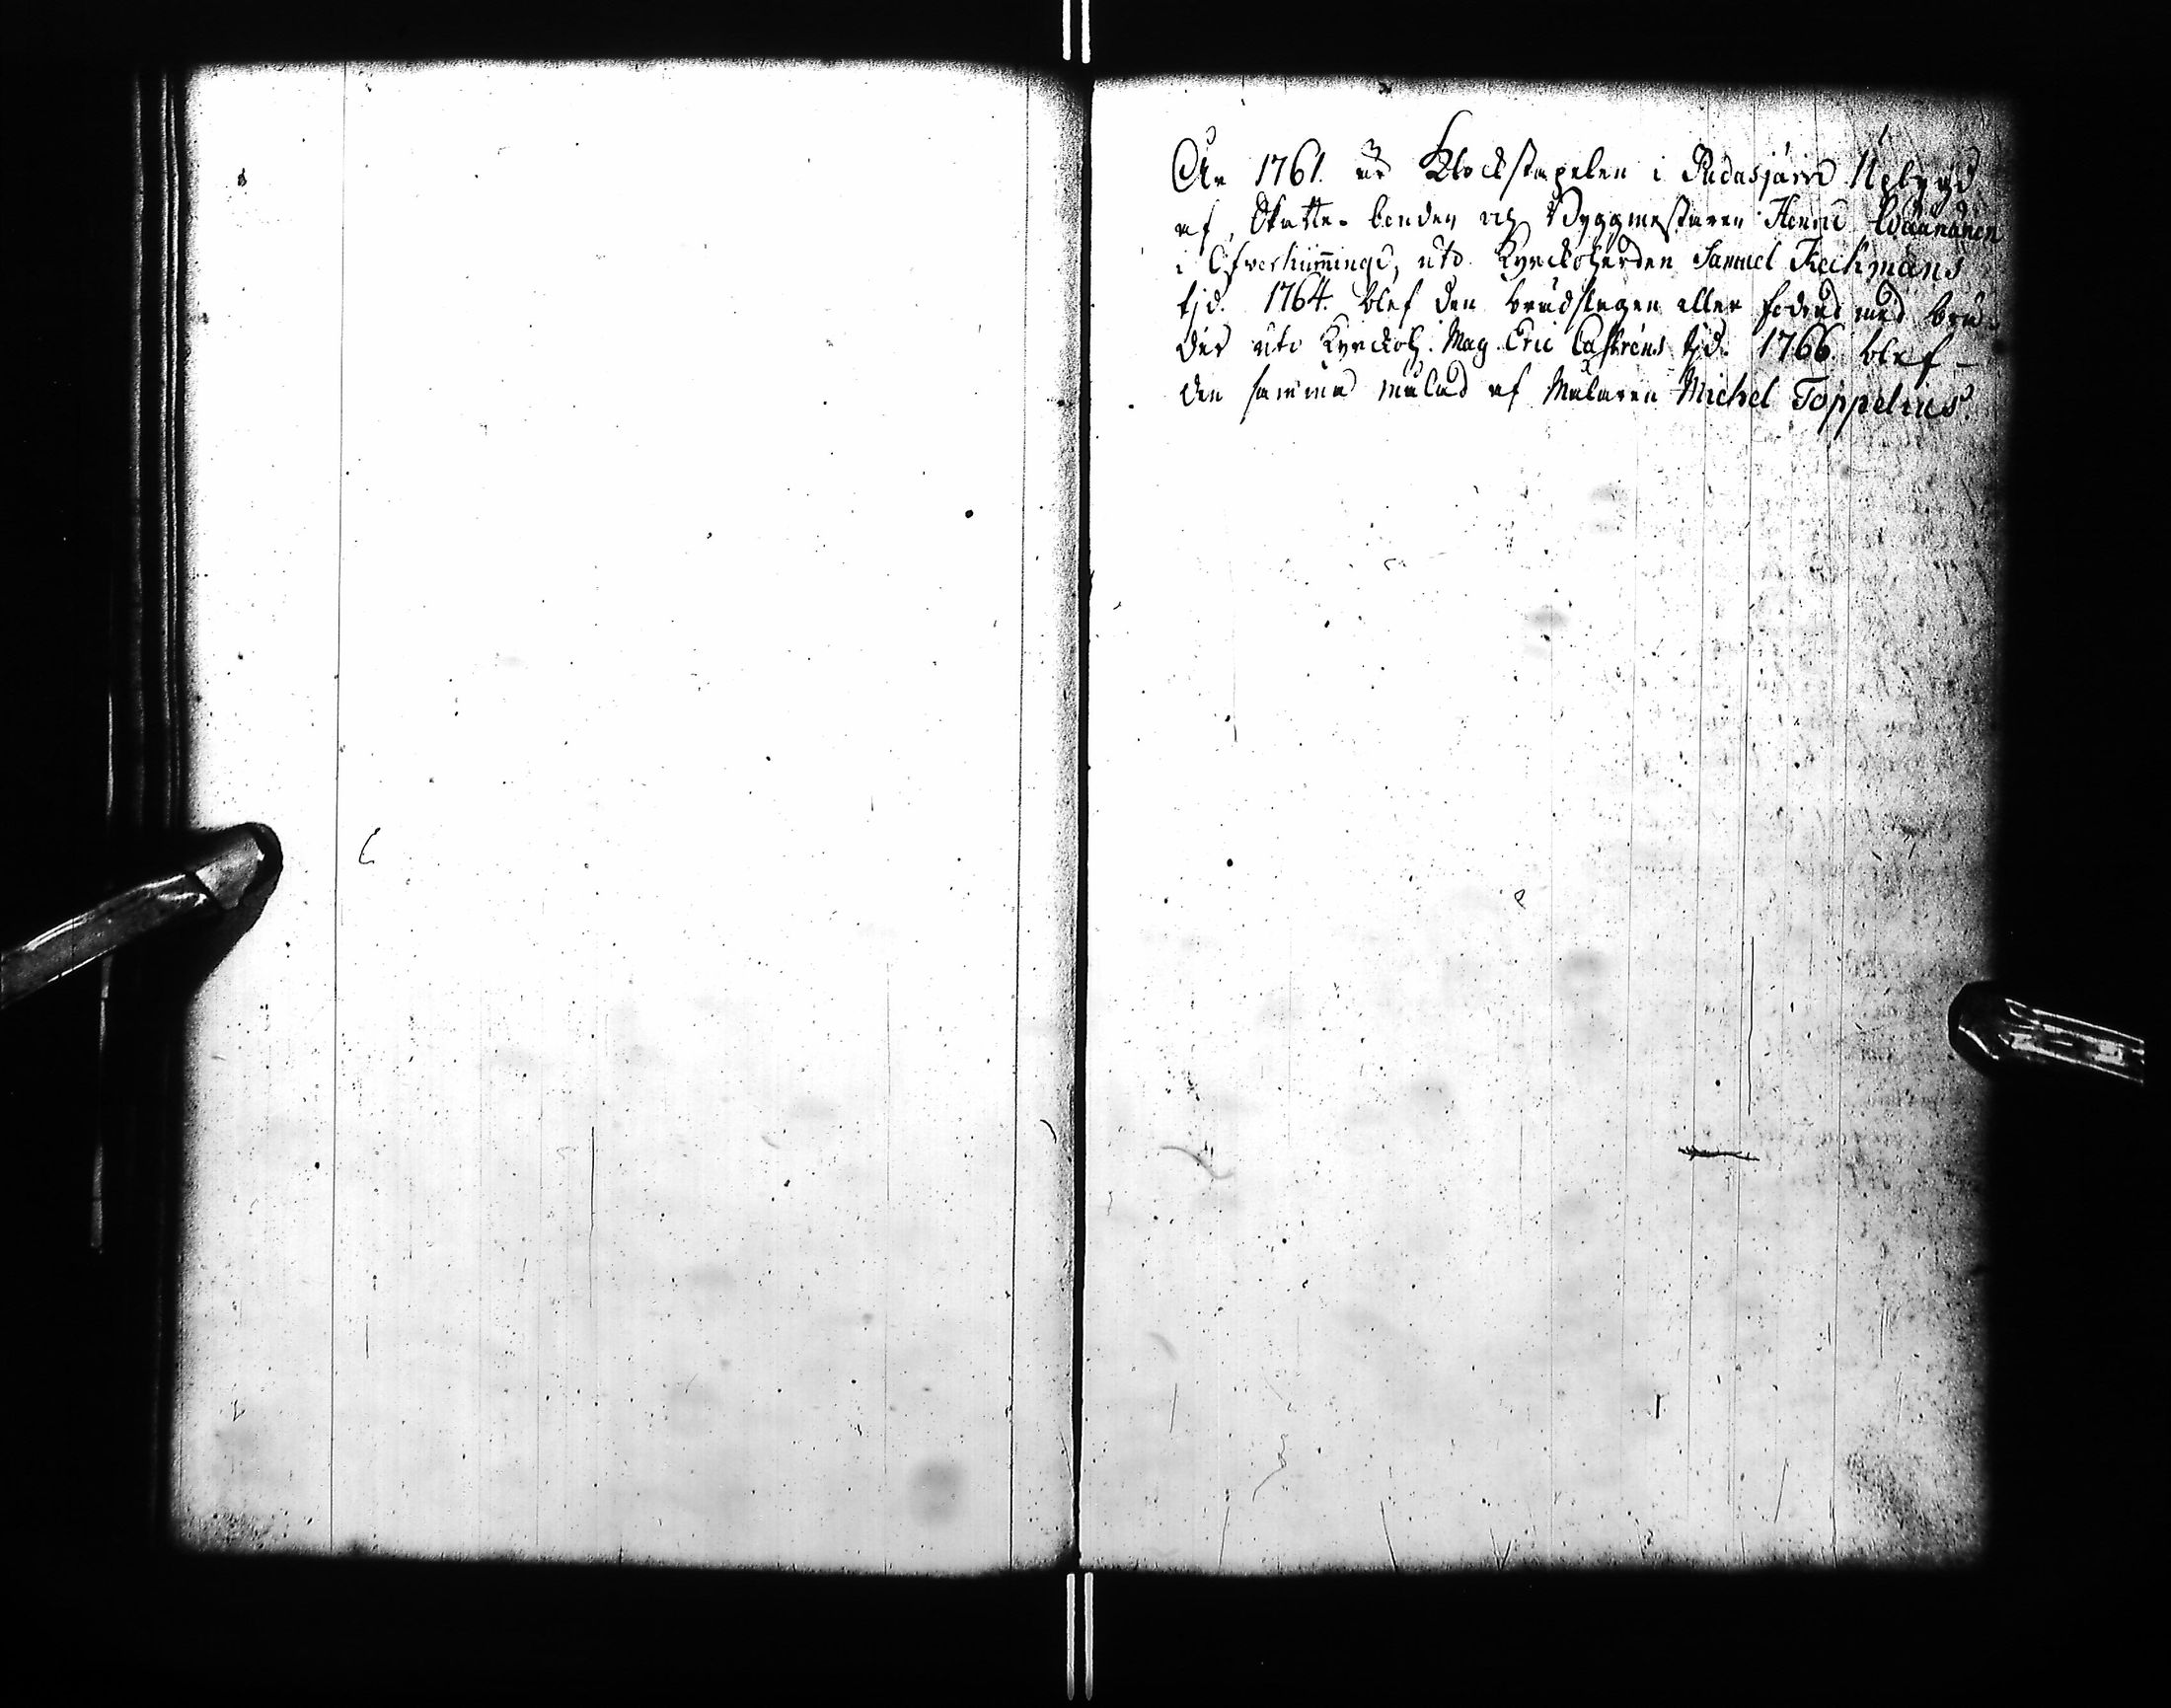 År 1761. är Klockstapelen i Pudasjärvi Upbygd
af Skatte-bonden och Byggmestaren Henric Wäänänen
i Öfverkiiminge, uti Kyrckoherden Samuel Heickmans
tjd. 1764. blef den brädslagen eller fodrad med brä-
der uti Kyrckoh. Mag. Eric Castréns tjd. 1766. blef
den samma målad af Målaren Michel Toppelius.